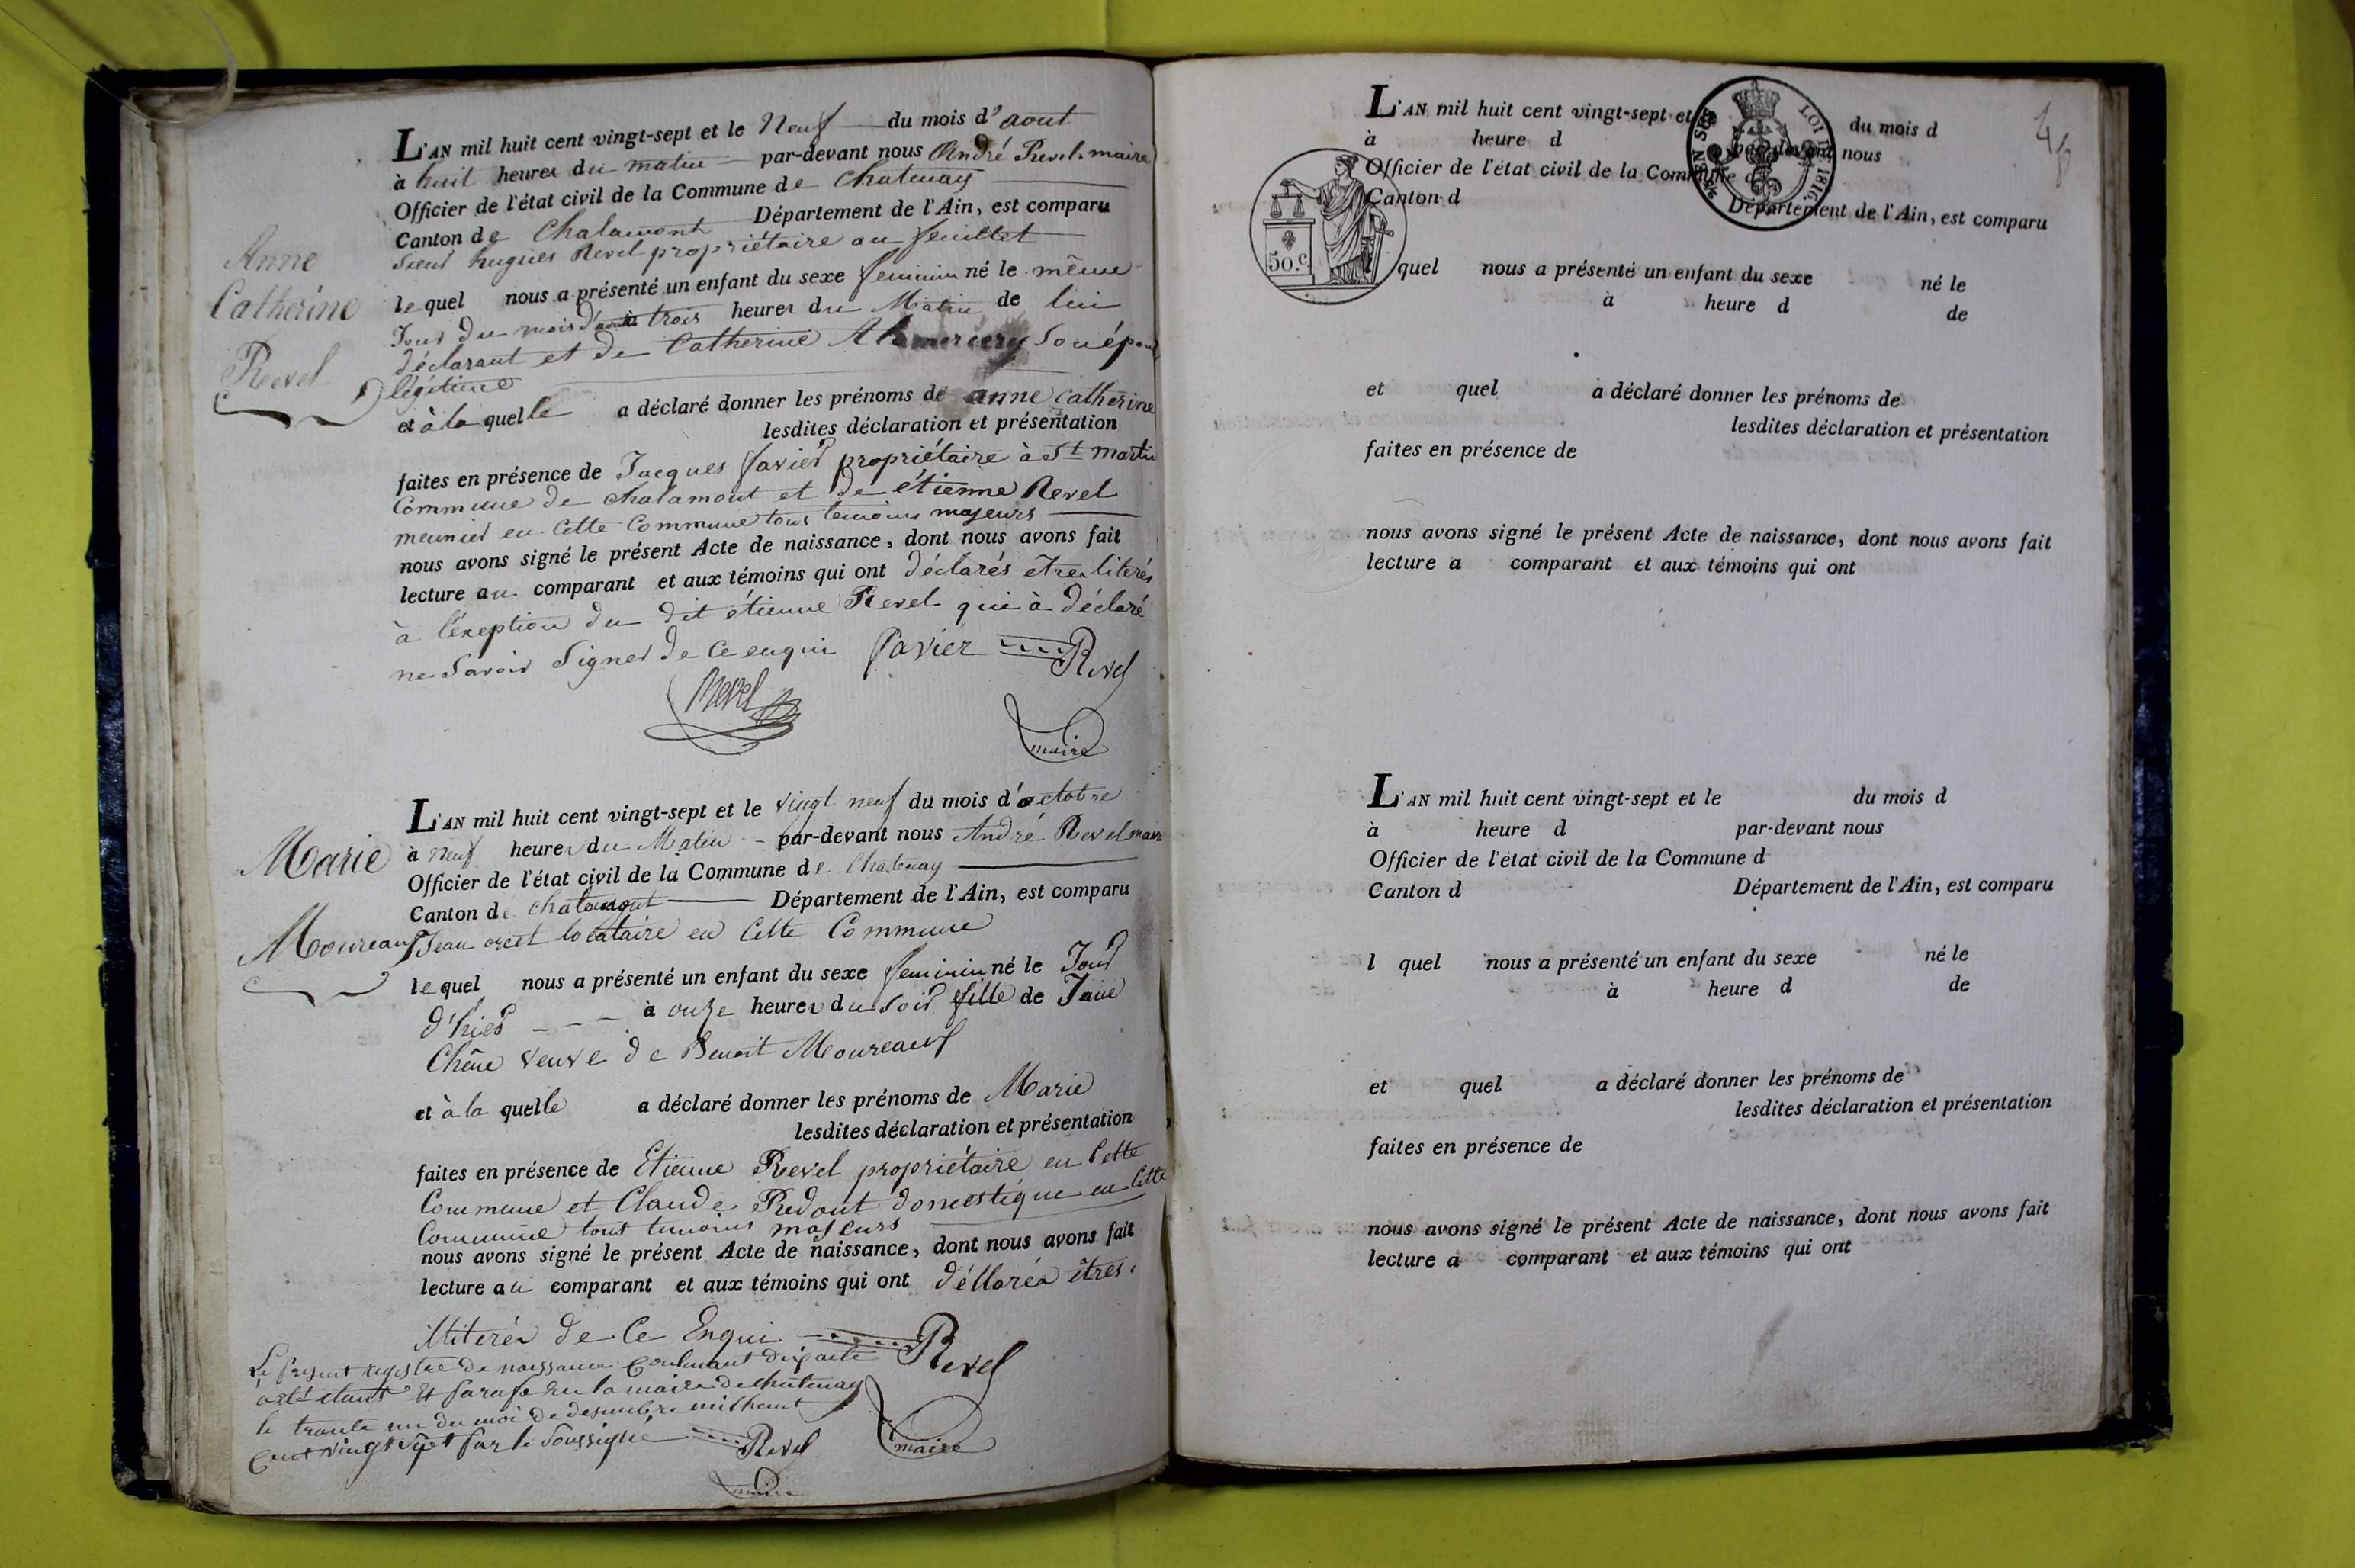 L'AN mil huit cent vingt-sept et le Neuf du mois d'aout
à huit heures du matin par-devant nous André Revel maire
Officier de l'état civil de la Commune de Chatenay
Canton de Chalamont Département de l'Ain, est comparu
Sieur hugues Revel propriétaire au feuillet
lequel nous a présenté un enfant du sexe feminin né le même
Jour du mois d'aout à trois heures du Matin de lui
déclarant et de Catherine son épouse
légitime
et à la quelle a déclaré donner les prénoms de anne catherine
lesdites déclaration et présentation
faites en présence de Jacques favier propriétaire à St martin
Commune de chalamont et de étienne Revel
meunier en Cette Commune tous temoins majeurs
nous avons signé le présent Acte de naissance, dont nous avons fait
lecture au comparant et aux témoins qui ont déclarés être literés
à l'éxeption du dit étienne Revel qui à déclaré
ne Savoir Signer de Ce enquis favier Revel
Revel
maire
Anne
Catherine
Revel
L'AN mil huit cent vingt-sept et le vingt neuf du mois d'octobre
à neuf heures du Matin par-devant nous André Revel maire
Officier de l'état civil de la Commune de Chatenay
Canton de chalamont Département de l'Ain, est comparu
Jean locataire en Cette Commune
lequel nous a présenté un enfant du sexe feminin né le Jour
d'hier à onze heures du soir fille de
Chêne veuve de Benoit Moureauf
et à la quelle a déclaré donner les prénoms de Marie
lesdites déclaration et présentation
faites en présence de Etienne Revel propriétaire en Cette
Commune et Claude Redout domestique en Cette
Commune tous temoins majeurs
nous avons signé le présent Acte de naissance, dont nous avons fait
lecture au comparant et aux témoins qui ont déclarés êtres
illiterés de Ce Enquis Revel
maire
Marie
Moureauf
Le present registre de naissance Contenant dix acte
à été et parafé en la mairie de chatenay
le trante un du moi de desembre mil huit
Cent vingt sept par le Soussigné Revel
maire
L'AN mil huit cent vingt-sept et le du mois d
à heure d par-devant nous
Officier de l'état civil de la Commune d
Canton d Département de l'Ain, est comparu
LOI DE 1816.
50.c
quel nous a présenté un enfant du sexe né le
à heure d de
et quel a déclaré donner les prénoms de
lesdites déclaration et présentation
faites en présence de
nous avons signé le présent Acte de naissance, dont nous avons fait
lecture a comparant et aux témoins qui ont
L'AN mil huit cent vingt-sept et le du mois d
à heure d par-devant nous
Officier de l'état civil de la Commune d
Canton d Département de l'Ain, est comparu
l quel nous a présenté un enfant du sexe né le
à heure d de
et quel a déclaré donner les prénoms de
lesdites déclaration et présentation
faites en présence de
nous avons signé le présent Acte de naissance, dont nous avons fait
lecture a comparant et aux témoins qui ont